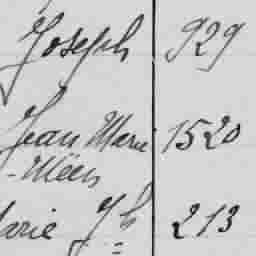 Joseph 929
Jean Marie 1520
-Méen
Marie Jh 213